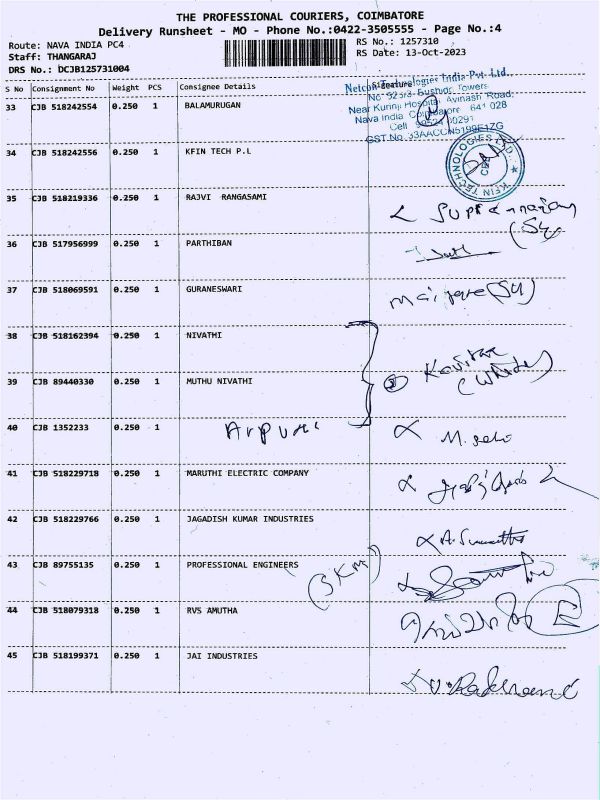 THE PROFESSIONAL COURIERS, COIMBATORE
Delivery Runsheet - MO - Phone No.:0422-3505555 - Page No.:4
Route: NAVA INDIA PC4
RS No.: 1257310
Staff: THANGARAJ
RS Date: 13-Oct-2023
DRS No.: DCJB125731004
S No Consignment No Weight PCS Consignee Details Signature
Netcon Technologies India Pvt. Ltd.
Near Kurinji Hospital, Avinashi Road,
Nava India, Coimbatore 641 028
33 CJB 518242554 0.250 1 BALAMURUGAN
34 CJB 518242556 0.250 1 KFIN TECH P.L
KFIN TECHNOLOGIES LTD
CBE
35 CJB 518219336 0.250 1 RAJVI RANGASAMI
36 CJB 517956999 0.250 1 PARTHIBAN
37 CJB 518069591 0.250 1 GURANESWARI
38 CJB 518162394 0.250 1 NIVATHI
39 CJB 89440330 0.250 1 MUTHU NIVATHI
40 CJB 1352233 0.250 1
41 CJB 518229718 0.250 1 MARUTHI ELECTRIC COMPANY
42 CJB 518229766 0.250 1 JAGADISH KUMAR INDUSTRIES
43 CJB 89755135 0.250 1 PROFESSIONAL ENGINEERS
44 CJB 518079318 0.250 1 RVS AMUTHA
45 CJB 518199371 0.250 1 JAI INDUSTRIES